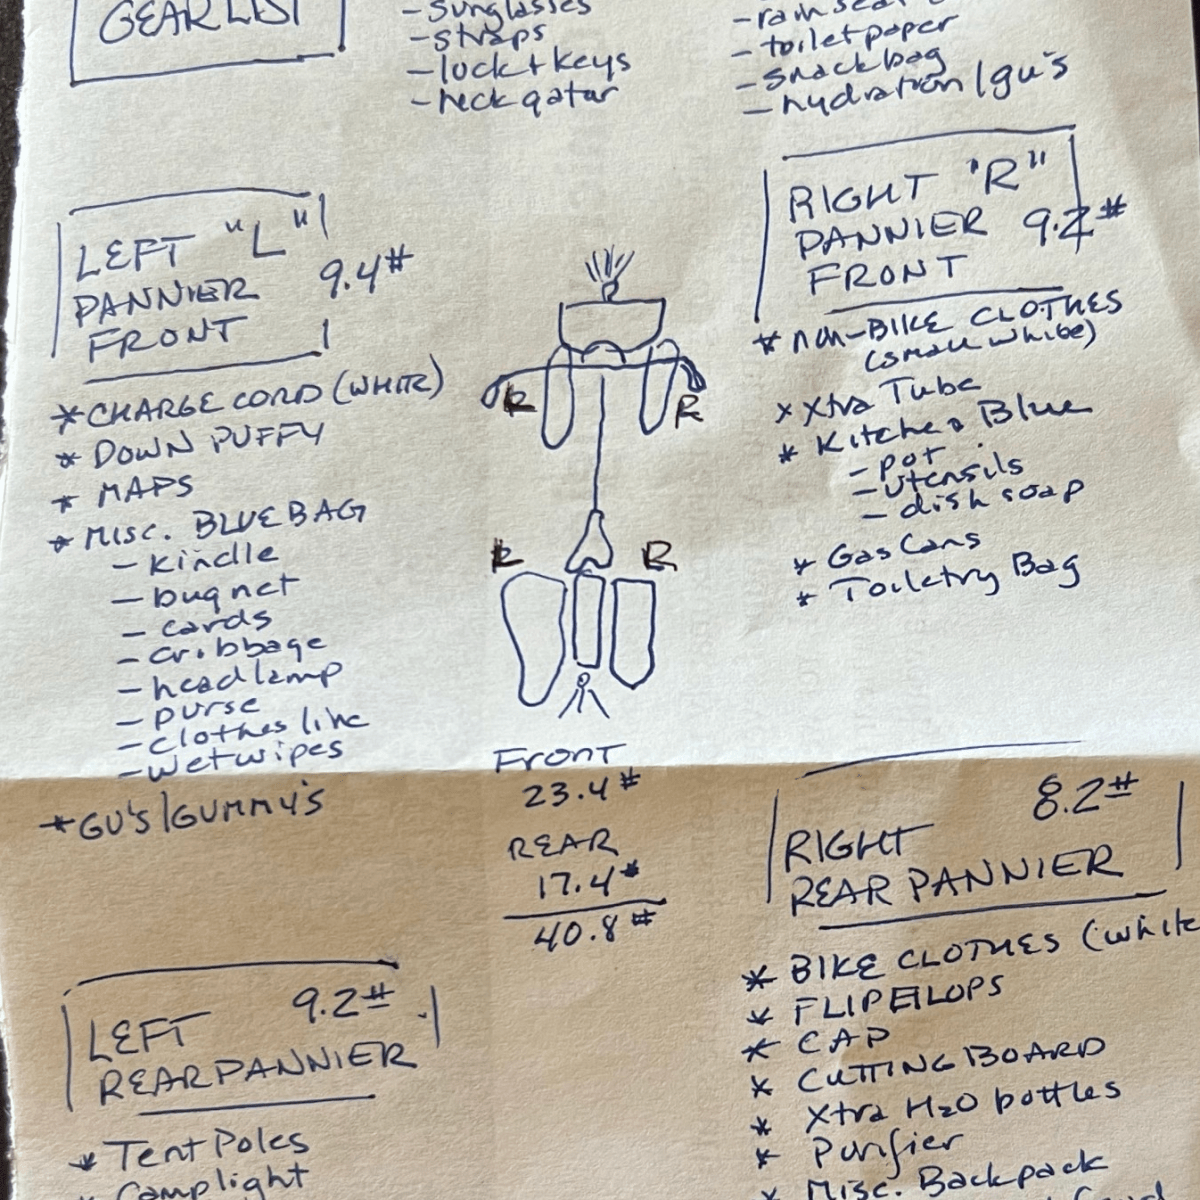 GEAR LIST
- sunglasses
- straps
- lock + keys
- neck gatar
- toilet paper
- snack bag
- hydration / gu's
LEFT "L"
PANNIER 9.4#
FRONT
* CHARGE CORD (WHITE)
* DOWN PUFFY
* MAPS
* MISC. BLUE BAG
- Kindle
- bug net
- cards
- cribbage
- headlamp
- purse
- clothes line
- wet wipes
* GU'S / GUMMY'S
R
R
R
Front
23.4#
REAR
17.4#
40.8#
RIGHT "R"
PANNIER 9.2#
FRONT
* non-BIKE CLOTHES
(small white)
x Xtra Tube
* Kitchen Blue
- pot
- utensils
- dish soap
* Gas Cans
* Toiletry Bag
LEFT 9.2#
REAR PANNIER
* Tent Poles
* Camp light
8.2#
RIGHT
REAR PANNIER
* BIKE CLOTHES (white
* FLIP FLOPS
* CAP
* CUTTING BOARD
* Xtra H2O bottles
* Purifier
x Misc. Backpack